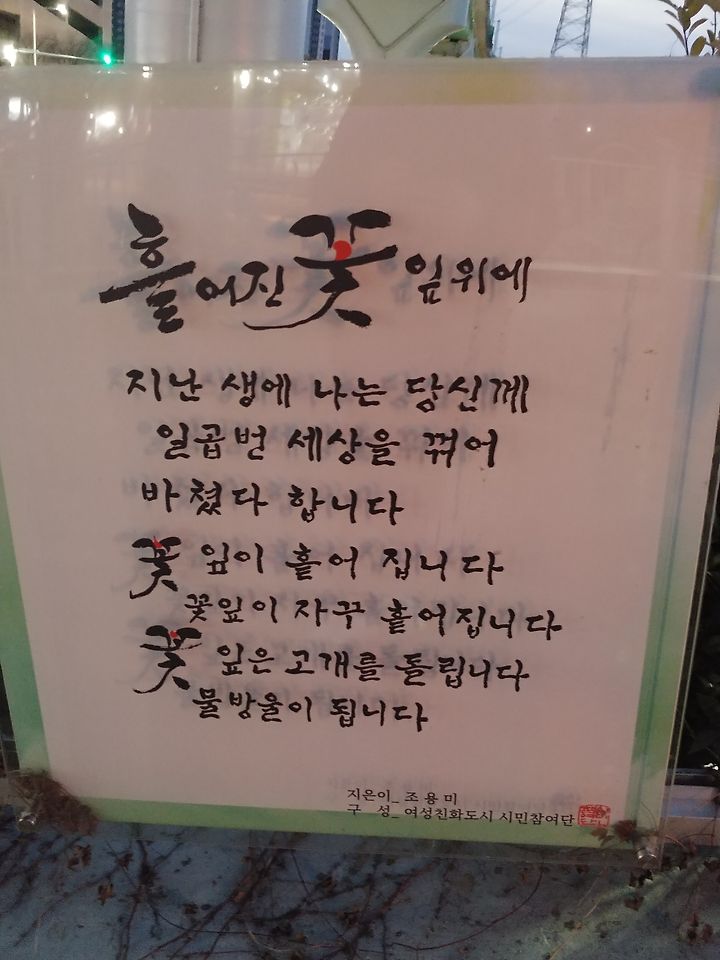 흩어진 꽃잎위에
지난 생에 나는 당신께
일곱번 세상을 꺾어
바쳤다 합니다
꽃잎이 흩어 집니다
꽃잎이 자꾸 흩어집니다
꽃잎은 고개를 돌립니다
물방울이 됩니다
지은이_ 조용미
구 성_ 여성친화도시 시민참여단